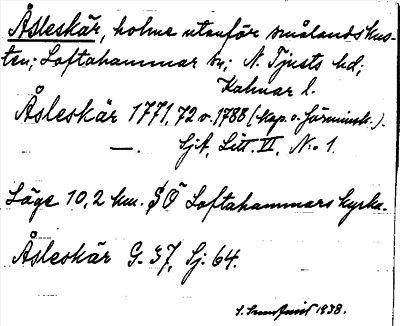 Åsleskär, holme utanför smålandskus-
ten; Loftahammar sn; N. Tjusts hd;
Kalmar l.
Åsleskär 1771, 72 o. 1788 (kap. o. Järnmisk.).
—. SjA, Litt. II, N:o 1.
Läge 10,2 km. SÖ Loftahammars kyrka.
Åsleskär G. 37, Sj. 64.
1938.